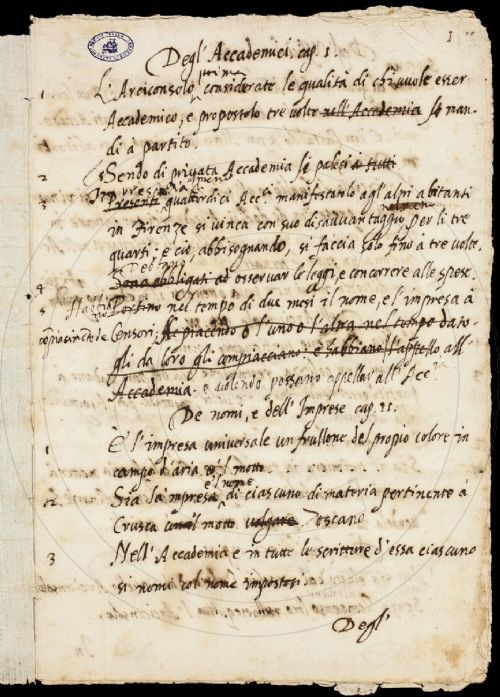 1
Degl' Accademici. cap. 1.
prima
1 L'Arciconsolo considerate le qualità di chi vuole esser
Accademico, e propostolo tre volte nell'Accademia se man-
di à partito.
2 Essendo di privata Accademia si palesi à tutti
3 Presenti quattordici Acc.ci manifestarlo agl'altri abitanti
in Firenze si vinca con suo disavvantaggio per li tre
quarti; e ciò, abbisognando, si faccia solo fino a tre volte.
Debbano
4 Sono obbligati ad osservar le leggi, e concorrere alle spese,
5 Portino nel tempo di due mesi il nome, e l'impresa à
Censori, Se piacendo o l'uno o l'altra nel tempo dato-
gli da loro gli compiacciano: e habbiano l'appello all'
Accademia. e volendo possano appellar all'Acc.a
De nomi, e dell'Imprese cap. II.
1 E l'impresa universale un frullone del propio colore in
campo d'aria e'l motto
e'l nome
2 Sia la impresa di ciascuno di materia pertinente á
Crusca con il motto volgare Toscano
3 Nell'Accademia e in tutte le scritture d'essa ciascuno
si nomi col nome impostosi.
Degl'